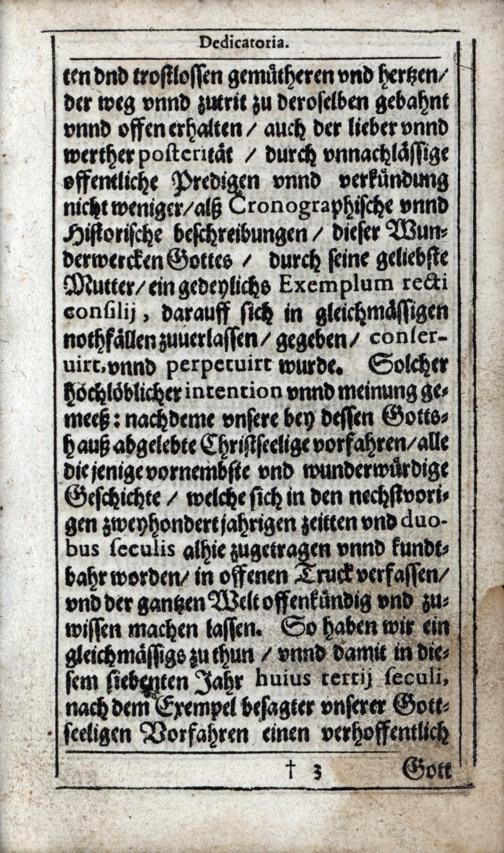 Dedicatoria.
ten vnd trostlossen gemütheren vnd hertzen/
der weg vnnd zutrit zu deroselben gebahnt
vnnd offen erhalten / auch der lieber vnnd
werther posterität / durch vnnachlässige
offentliche Predigen vnnd verkündung
nicht weniger/alß Cronographische vnnd
Historische beschreibungen / dieser Wun-
derwercken Gottes / durch seine geliebste
Mutter/ein gedeylichs Exemplum recti
consilij, darauff sich in gleichmässigen
nothfällen zuuerlassen/ gegeben/ conser-
uirt, vnnd perpetuirt wurde. Solcher
höchlöblicher intention vnnd meinung ge-
meeß: nachdeme vnsere bey dessen Gotts-
hauß abgelebte Christseelige vorfahren/alle
die jenige vornembste vnd wunderwürdige
Geschichte / welche sich in den nechstvori-
gen zweyhondert jahrigen zeitten vnd duo-
bus seculis alhie zugetragen vnnd kundt-
bahr worden/ in offenen Truck verfassen/
vnd der gantzen Welt offenkündig vnd zu-
wissen machen lassen. So haben wir ein
gleichmässigs zu thun / vnnd damit in die-
sem siebenten Jahr huius tertij seculi,
nach dem Exempel besagter vnserer Gott-
seeligen Vorfahren einen verhoffentlich
† 3 Gott